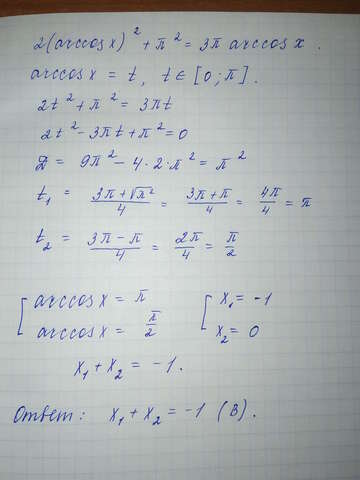 2(arccos x)² + π² = 3π arccos x.
arccos x = t, t ∈ [0; π].
2t² + π² = 3πt
2t² - 3πt + π² = 0
D = 9π² - 4·2·π² = π²
t₁ = (3π + √π²)/4 = (3π + π)/4 = 4π/4 = π
t₂ = (3π - π)/4 = 2π/4 = π/2
[ arccos x = π [ x₁ = -1
arccos x = π/2 x₂ = 0
x₁ + x₂ = -1.
Ответ: x₁ + x₂ = -1 (В).